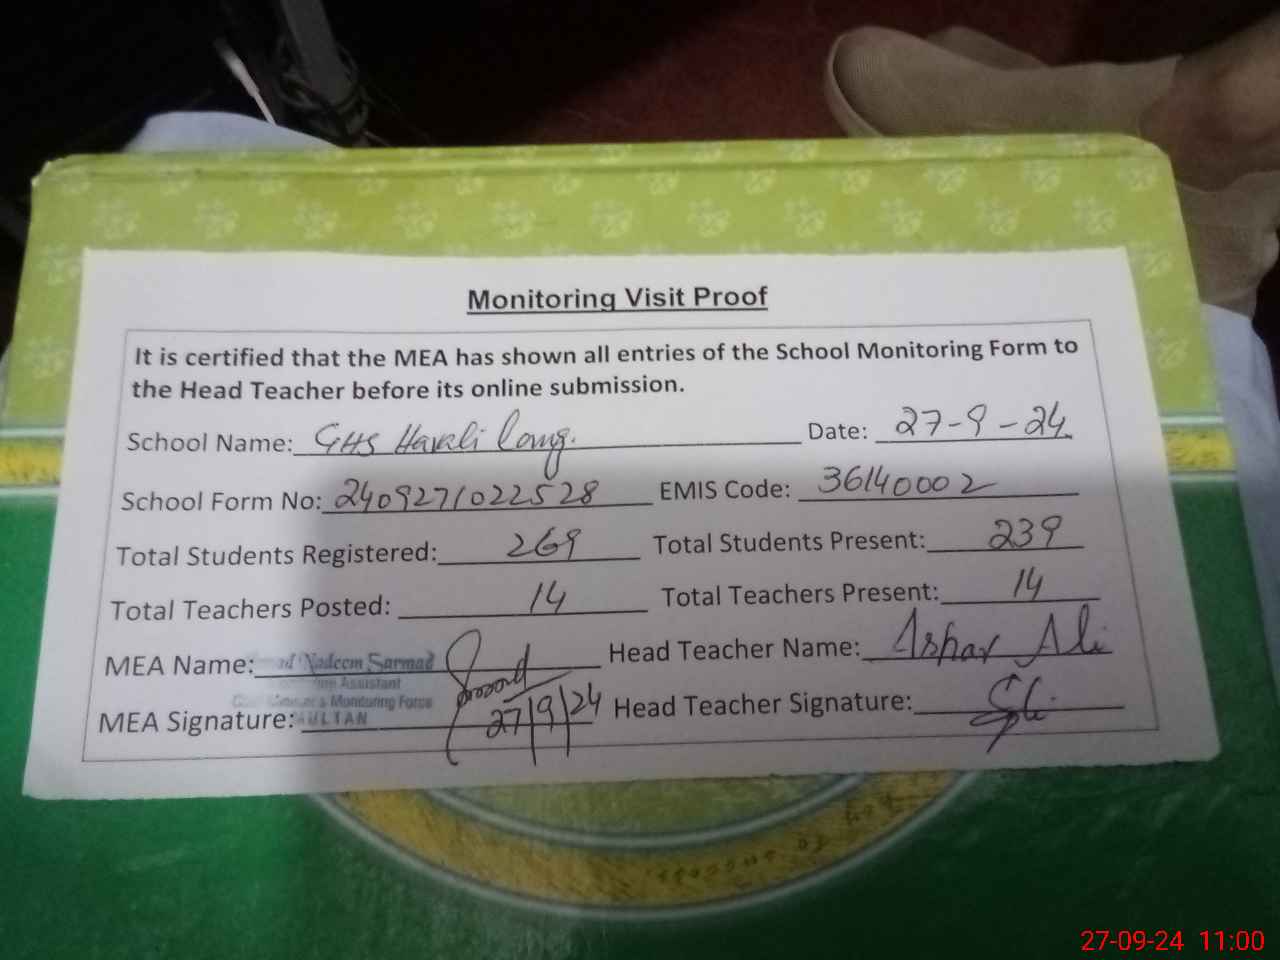 Monitoring Visit Proof
It is certified that the MEA has shown all entries of the School Monitoring Form to
the Head Teacher before its online submission.
School Name: GHS Havali Lang. Date: 27-9-24
School Form No: 2409271022528 EMIS Code: 36140002
Total Students Registered: 269 Total Students Present: 239
Total Teachers Posted: 14 Total Teachers Present: 14
MEA Name: Nadeem Sarmad Head Teacher Name: Ali
Assistant
Monitoring Force
MEA Signature: MULTAN 27/9/24 Head Teacher Signature:
27-09-24 11:00